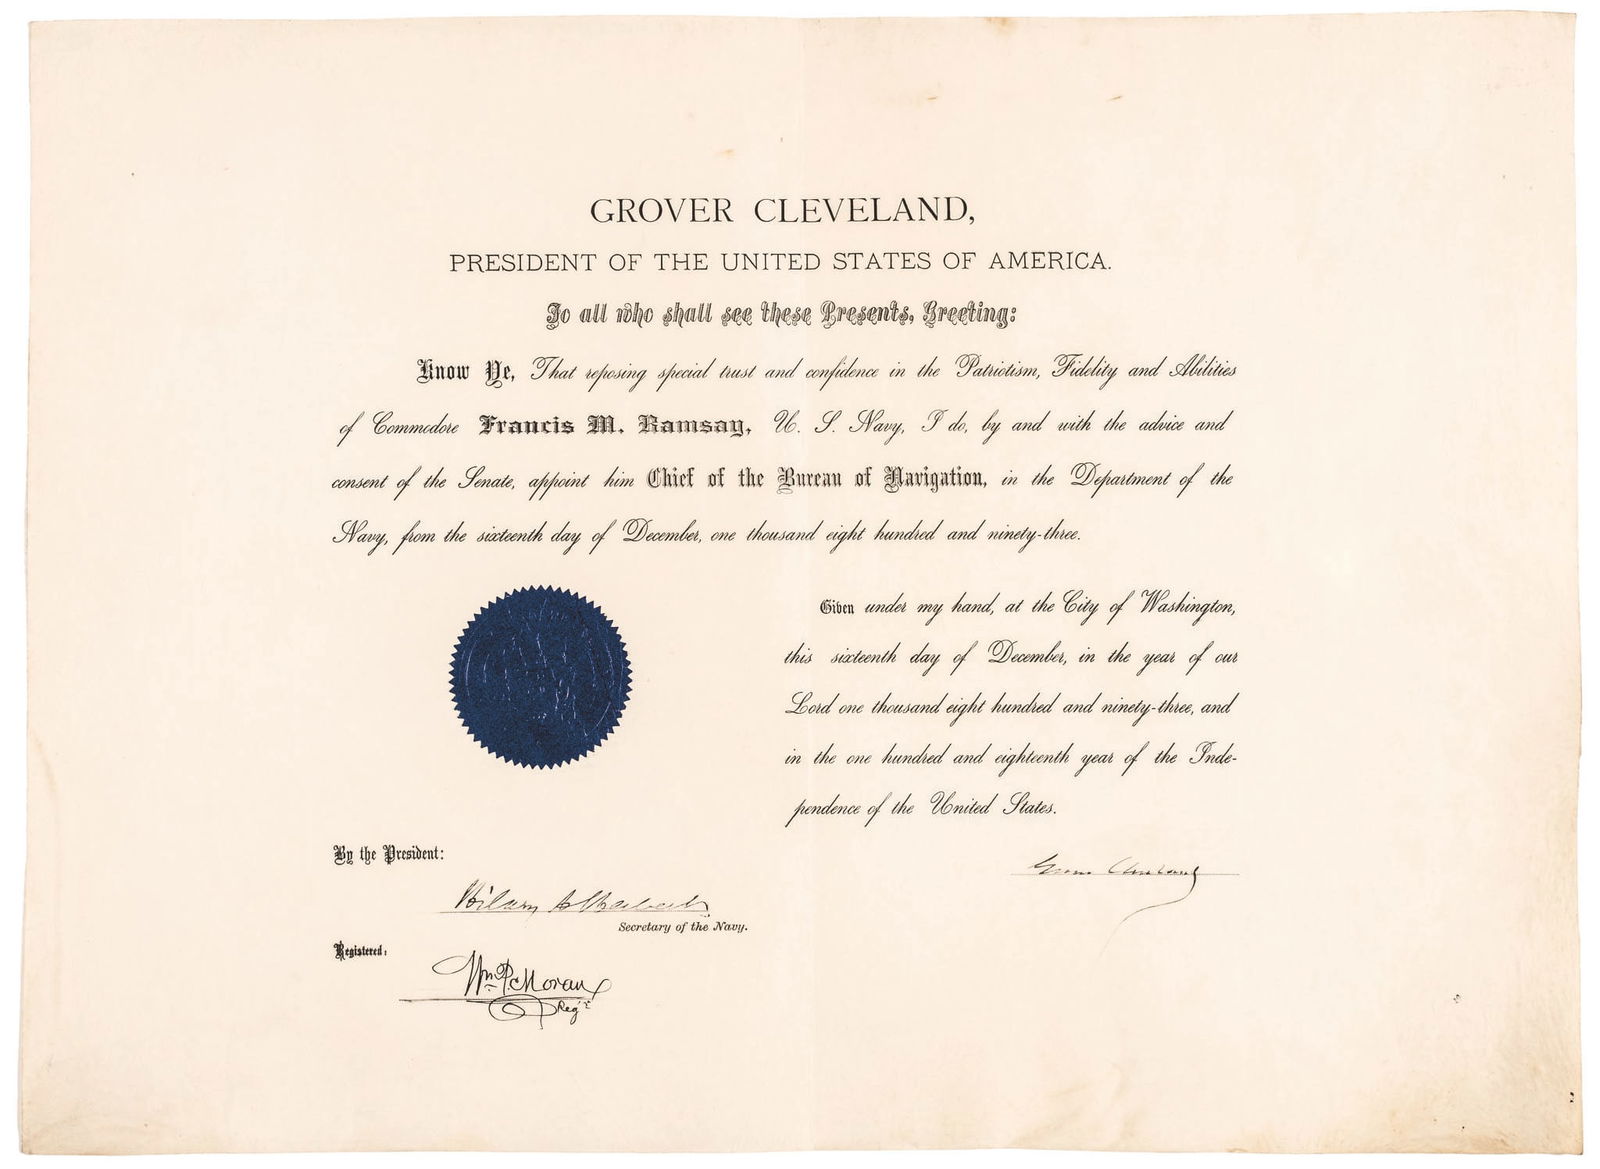 GROVER CLEVELAND,
PRESIDENT OF THE UNITED STATES OF AMERICA.
To all who shall see these Presents, Greeting:
Know Ye, That reposing special trust and confidence in the Patriotism, Fidelity and Abilities
of Commodore Francis M. Ramsay, U. S. Navy, I do, by and with the advice and
consent of the Senate, appoint him Chief of the Bureau of Navigation, in the Department of the
Navy, from the sixteenth day of December, one thousand eight hundred and ninety-three.
Given under my hand, at the City of Washington,
this sixteenth day of December, in the year of our
Lord one thousand eight hundred and ninety-three, and
in the one hundred and eighteenth year of the Inde-
pendence of the United States.
Grover Cleveland
By the President:
Hilary A Herbert
Secretary of the Navy.
Registered:
Wm P. Moran
Reg'r